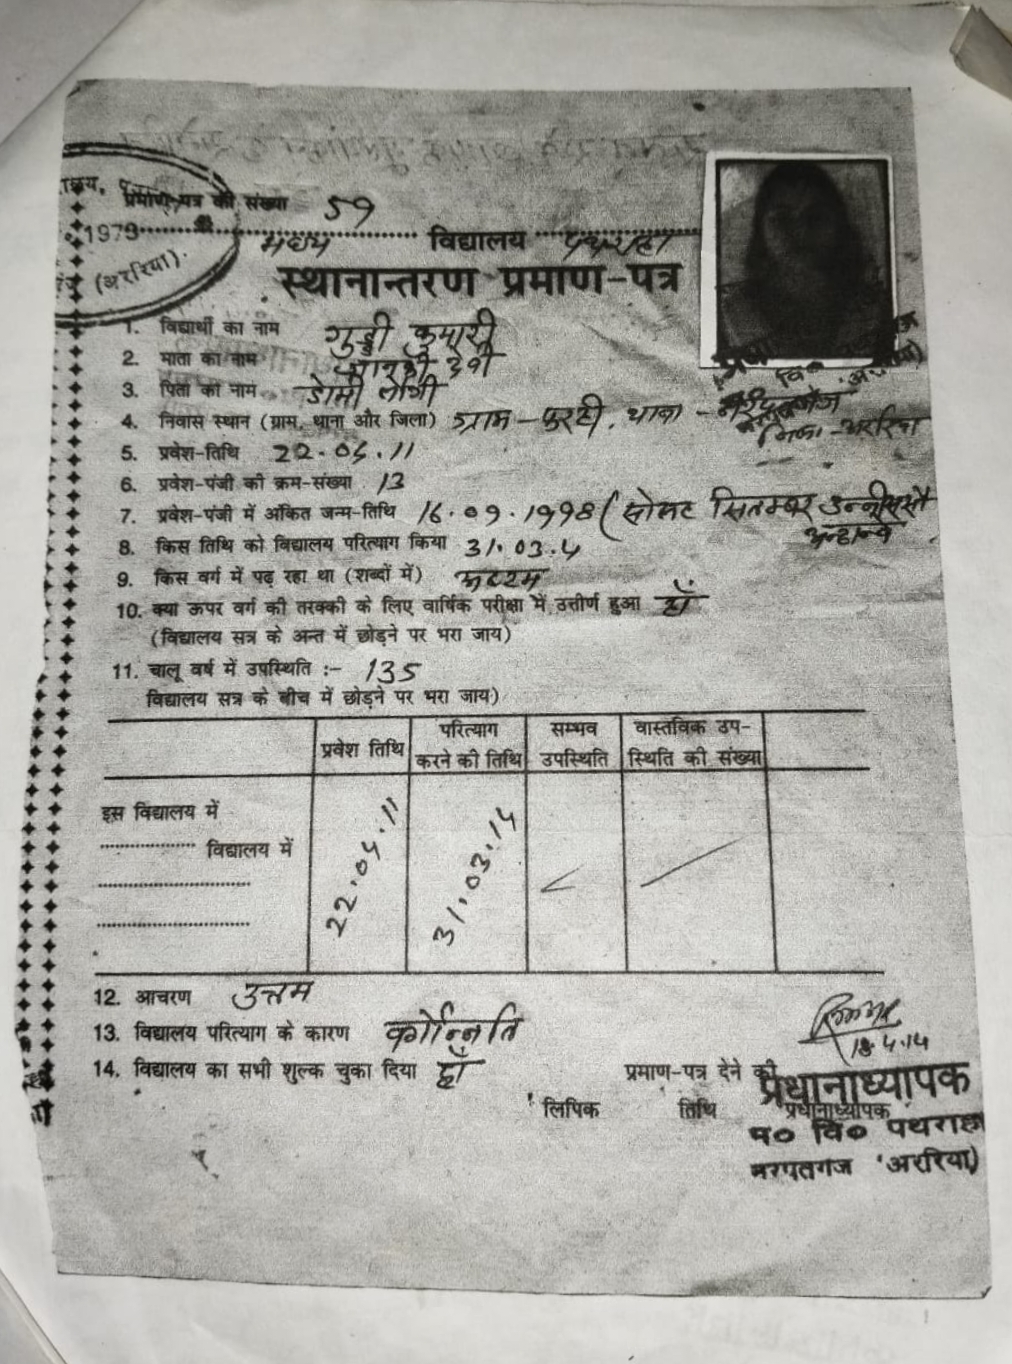 प्रमाण-पत्र की संख्या 59
1979
(अररिया).
मध्य विद्यालय पथराहा
स्थानान्तरण प्रमाण-पत्र
1. विद्यार्थी का नाम गुड्डी कुमारी
2. माता का नाम जानकी देवी
3. पिता का नाम
4. निवास स्थान (ग्राम, थाना और जिला) ग्राम - फरही, थाना - नरपतगंज
जिला - अररिया
5. प्रवेश-तिथि 22.04.11
6. प्रवेश-पंजी की क्रम-संख्या 13
7. प्रवेश-पंजी में अंकित जन्म-तिथि 16.09.1998 (सोलह सितम्बर उन्नीस सौ
अन्ठान्वे
8. किस तिथि को विद्यालय परित्याग किया 31.03.4
9. किस वर्ग में पढ़ रहा था (शब्दों में) अष्टम
10. क्या ऊपर वर्ग की तरक्की के लिए वार्षिक परीक्षा में उत्तीर्ण हुआ हाँ
(विद्यालय सत्र के अन्त में छोड़ने पर भरा जाय)
11. चालू वर्ष में उपस्थिति :- 135
विद्यालय सत्र के बीच में छोड़ने पर भरा जाय)
प्रवेश तिथि परित्याग करने की तिथि सम्भव उपस्थिति वास्तविक उप-स्थिति की संख्या
इस विद्यालय में
विद्यालय में
22.04.11 31.03.14
12. आचरण उत्तम
13. विद्यालय परित्याग के कारण वर्गोन्नति
14. विद्यालय का सभी शुल्क चुका दिया हाँ
18.4.14
प्रमाण-पत्र देने की
प्रधानाध्यापक
लिपिक तिथि प्रधानाध्यापक
म० वि० पथराहा
नरपतगंज (अररिया)